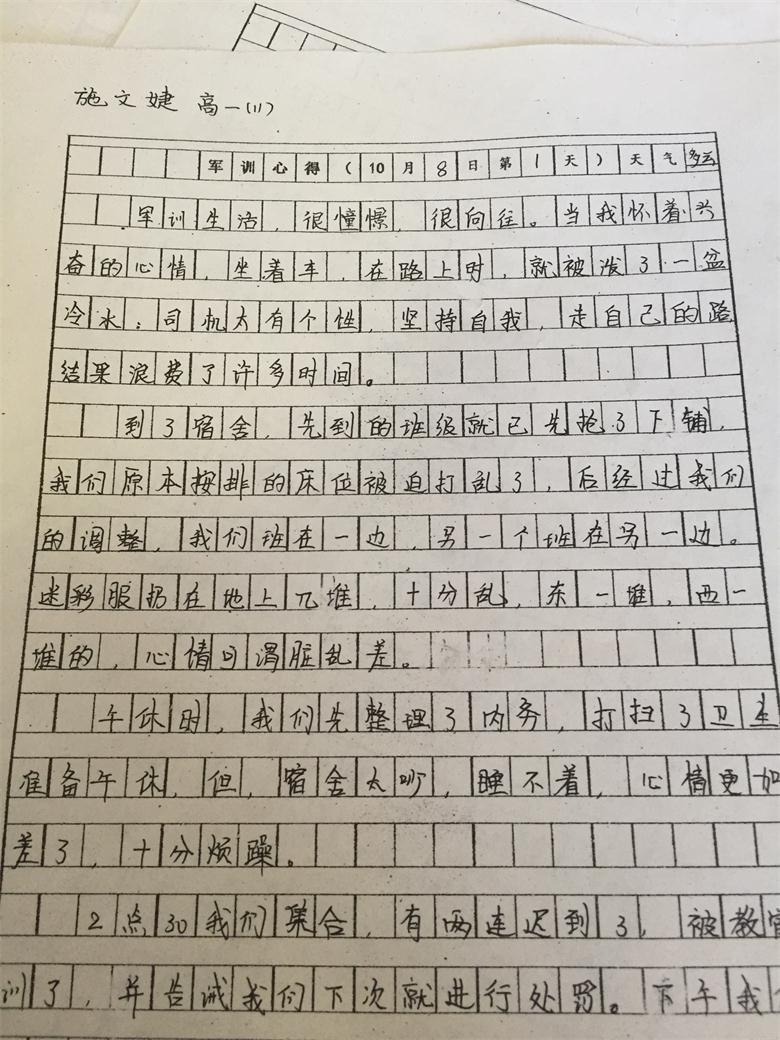 施文婕 高一(11)
军训心得(10月8日第1天)天气多云
军训生活,很憧憬,很向往。当我怀着兴
奋的心情,坐着车,在路上时,就被泼了一盆
冷水:司机太有个性,坚持自我,走自己的路
结果浪费了许多时间。
到了宿舍,先到的班级就已先抢了下铺,
我们原本按排的床位被迫打乱了,后经过我们
的调整,我们班在一边,另一个班在另一边。
迷彩服扔在地上几堆,十分乱,东一堆,西一
堆的,心情可谓脏乱差。
午休时,我们先整理了内务,打扫了卫生
准备午休,但,宿舍太吵,睡不着,心情更加
差了,十分烦躁。
2点30我们集合,有两连迟到了,被教官
训了,并告诫我们下次就进行处罚。下午我